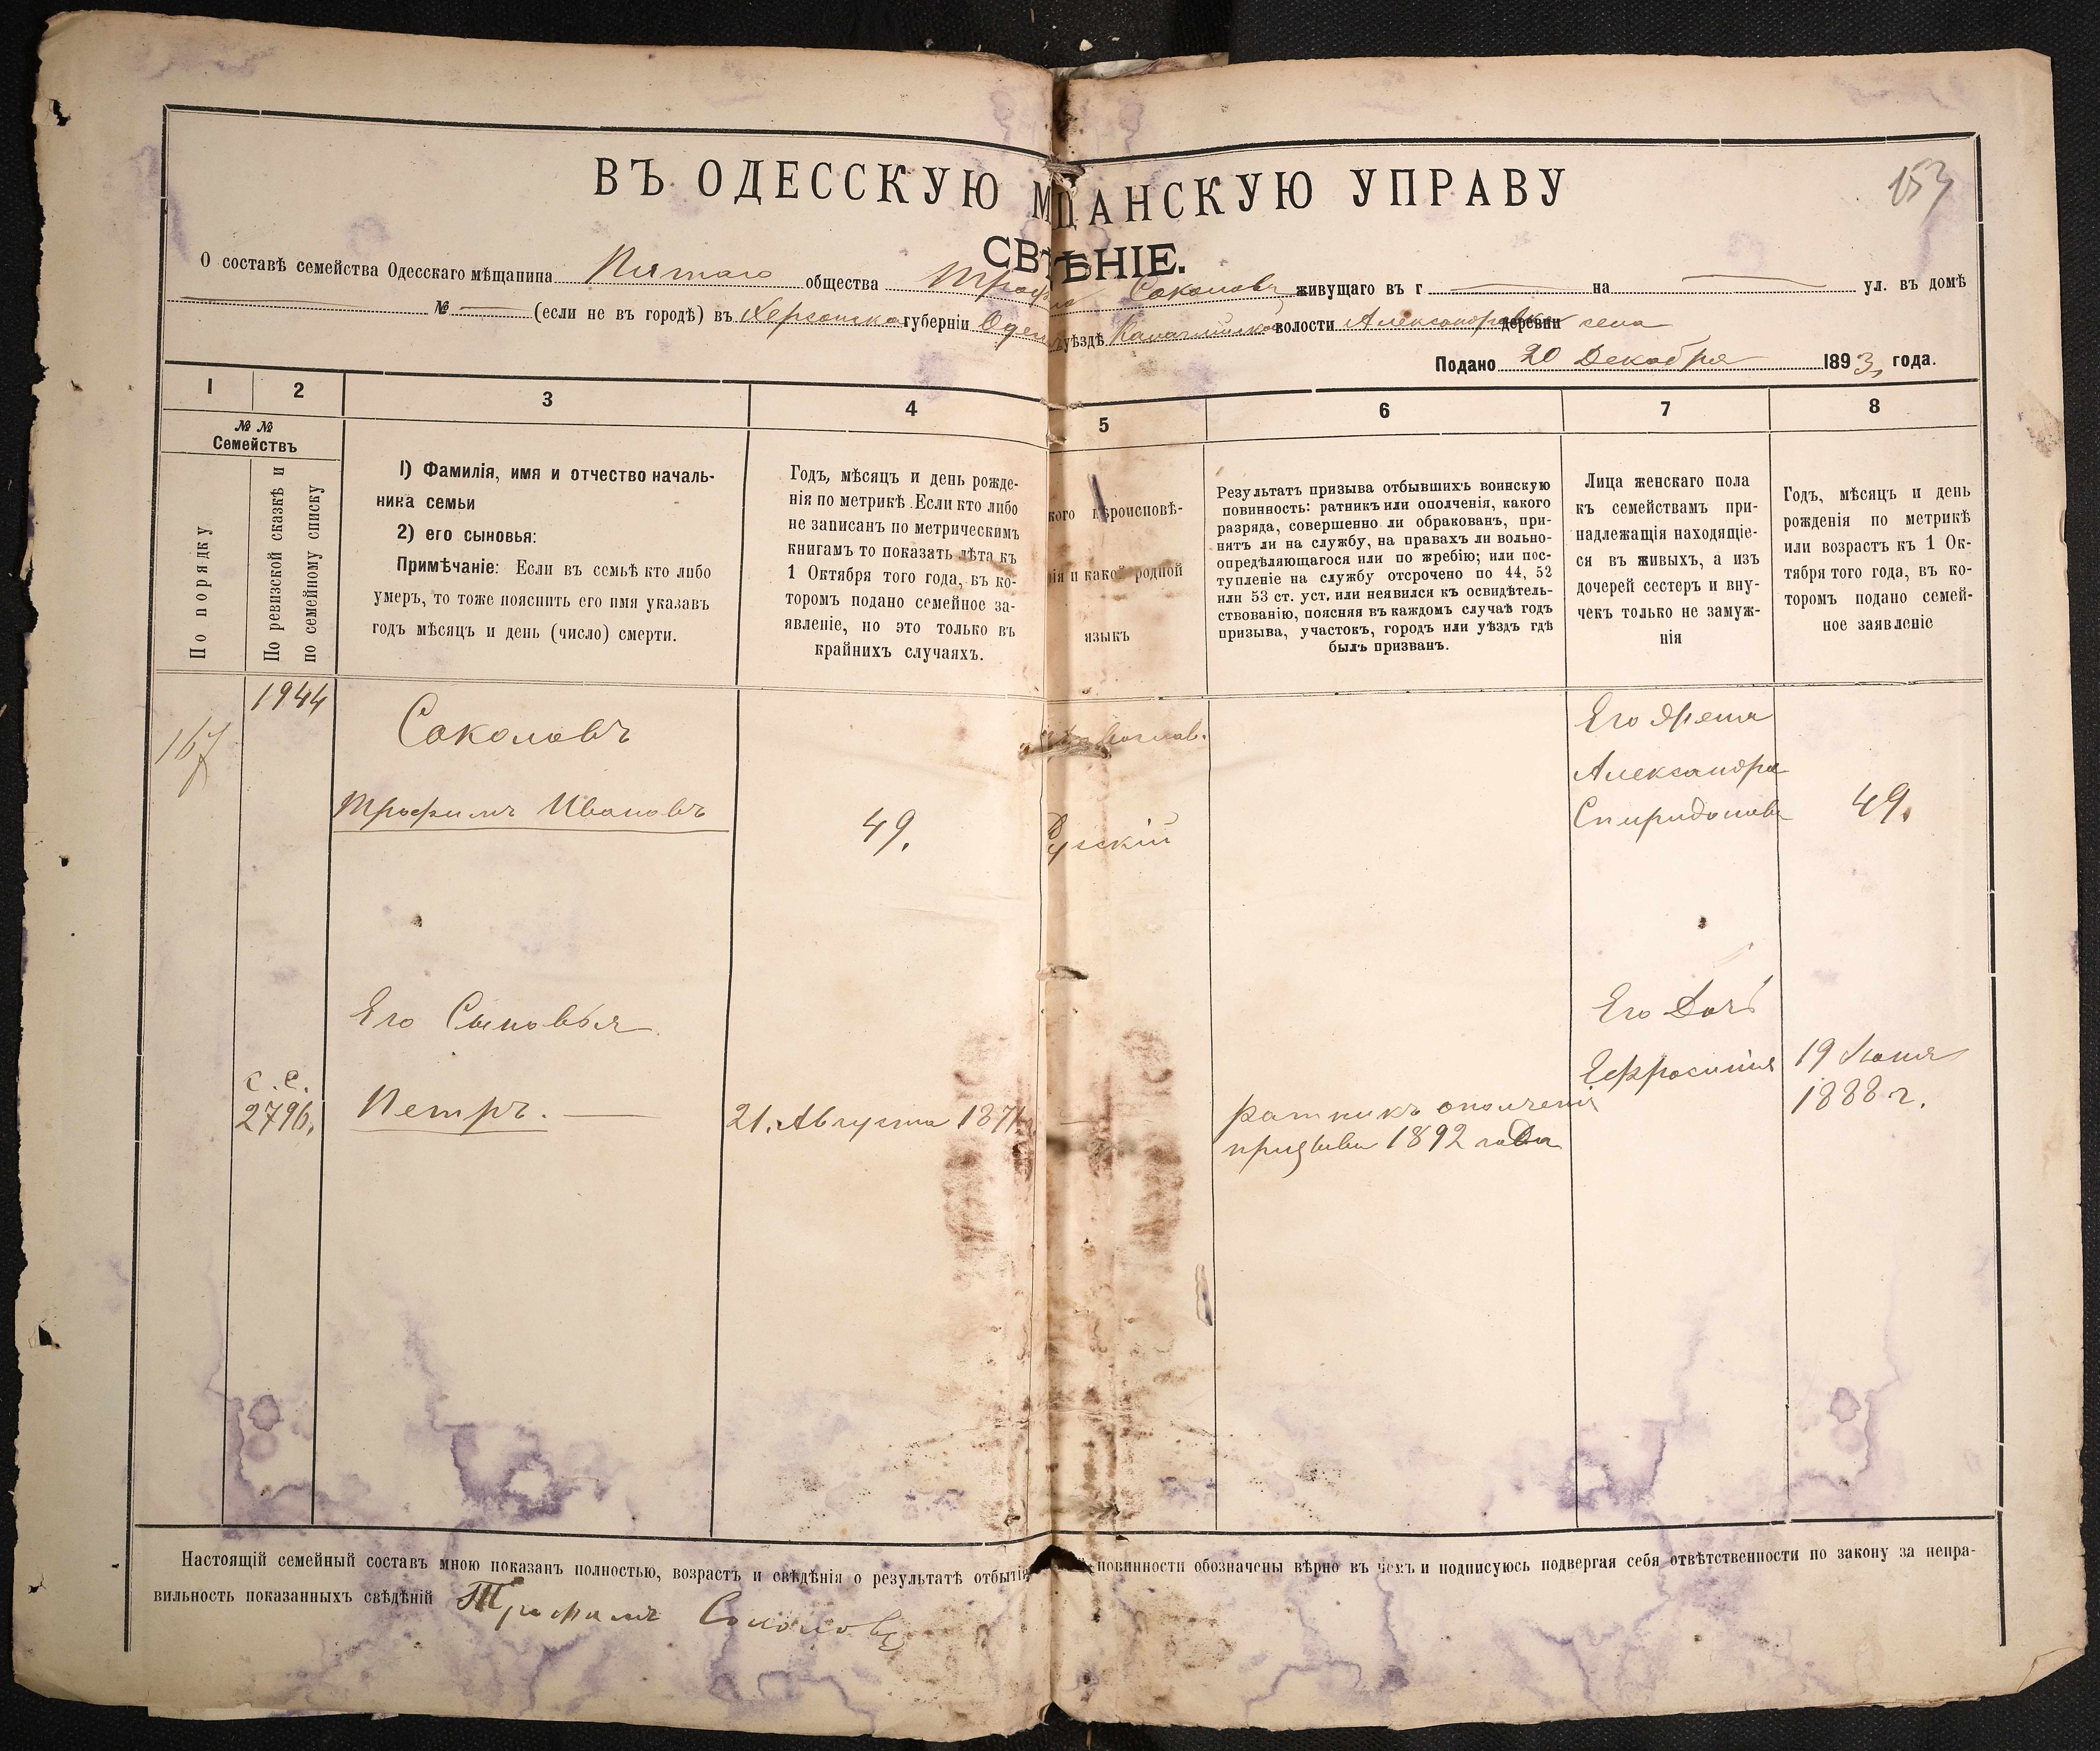 153
ВЪ ОДЕССКУЮ М ЩАНСКУЮ УПРАВУ
СВѢ ѢНІЕ.
О составѣ семейства Одесскаго мѣщанина Пятаго общества Трофи Соколовъ живущаго въ г — на — ул. въ домѣ
— № — (если не въ городѣ) въ Херсонской губерніи уѣздѣ волости Александровка деревни села
Подано 20 Декабря 1893 года.
1 2 3 4 5 6 7 8
№ №
Семействъ
По порядку
По ревизской сказкѣ и
по семейному списку
1) Фамилія, имя и отчество началь-
ника семьи
2) его сыновья:
Примѣчаніе: Если въ семьѣ кто либо
умеръ, то тоже пояснить его имя указавъ
годъ мѣсяцъ и день (число) смерти.
Годъ, мѣсяцъ и день рожде-
нія по метрикѣ. Если кто либо
не записанъ по метрическимъ
книгамъ то показать лѣта къ
1 Октября того года, въ ко-
торомъ подано семейное за-
явленіе, но это только въ
крайнихъ случаяхъ.
кого вѣроисповѣ-
нія и какой родной
языкъ
Результатъ призыва отбывшихъ воинскую
повинность: ратникъ или ополченія, какого
разряда, совершенно ли обракованъ, при-
нятъ ли на службу, на правахъ ли вольно-
опредѣляющагося или по жребію; или пос-
тупленіе на службу отсрочено по 44, 52
или 53 ст. уст. или неявился къ освидѣтель-
ствованію, поясняя въ каждомъ случаѣ годъ
призыва, участокъ, городъ или уѣздъ гдѣ
былъ призванъ.
Лица женскаго пола
къ семействамъ при-
надлежащія находящіе-
ся въ живыхъ, а изъ
дочерей сестеръ и вну-
чекъ только не замуж-
нія
Годъ, мѣсяцъ и день
рожденія по метрикѣ
или возрастъ къ 1 Ок-
тября того года, въ ко-
торомъ подано семей-
ное заявленіе
167
1944
Соколовъ
Трофимъ Ивановъ
49.
Православ.
Русскій
Его жена
Александра
Спиридонова
49.
Его Сыновья
С. С.
2796.
Петръ. —
21. Августа 1871
ратникъ ополченія
призыва 1892 года
Его Дочь
Ефросинія
19 Іюня
1888 г.
Настоящій семейный составъ мною показанъ полностью, возрастъ и свѣдѣнія о результатѣ отбытія повинности обозначены вѣрно въ чемъ и подписуюсь подвергая себя отвѣтственности по закону за непра-
вильность показанныхъ свѣдѣній Трофимъ Соколовъ